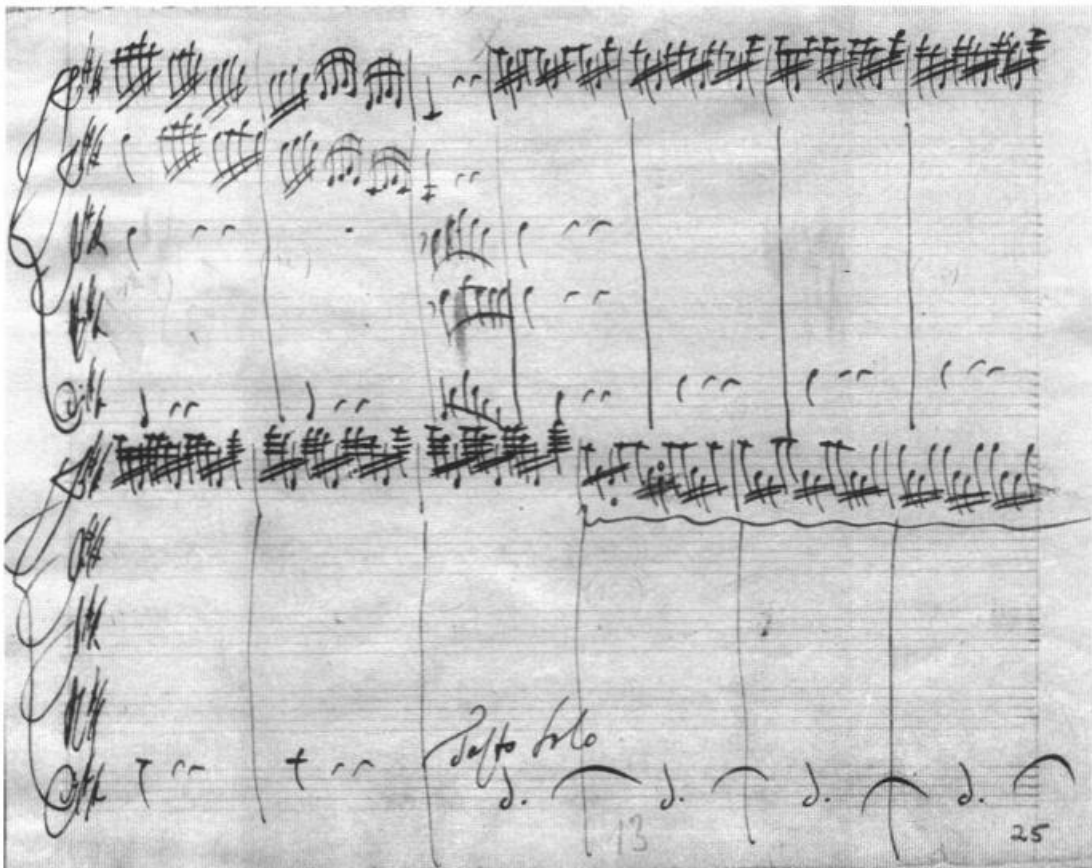 Tasto Solo
13
25